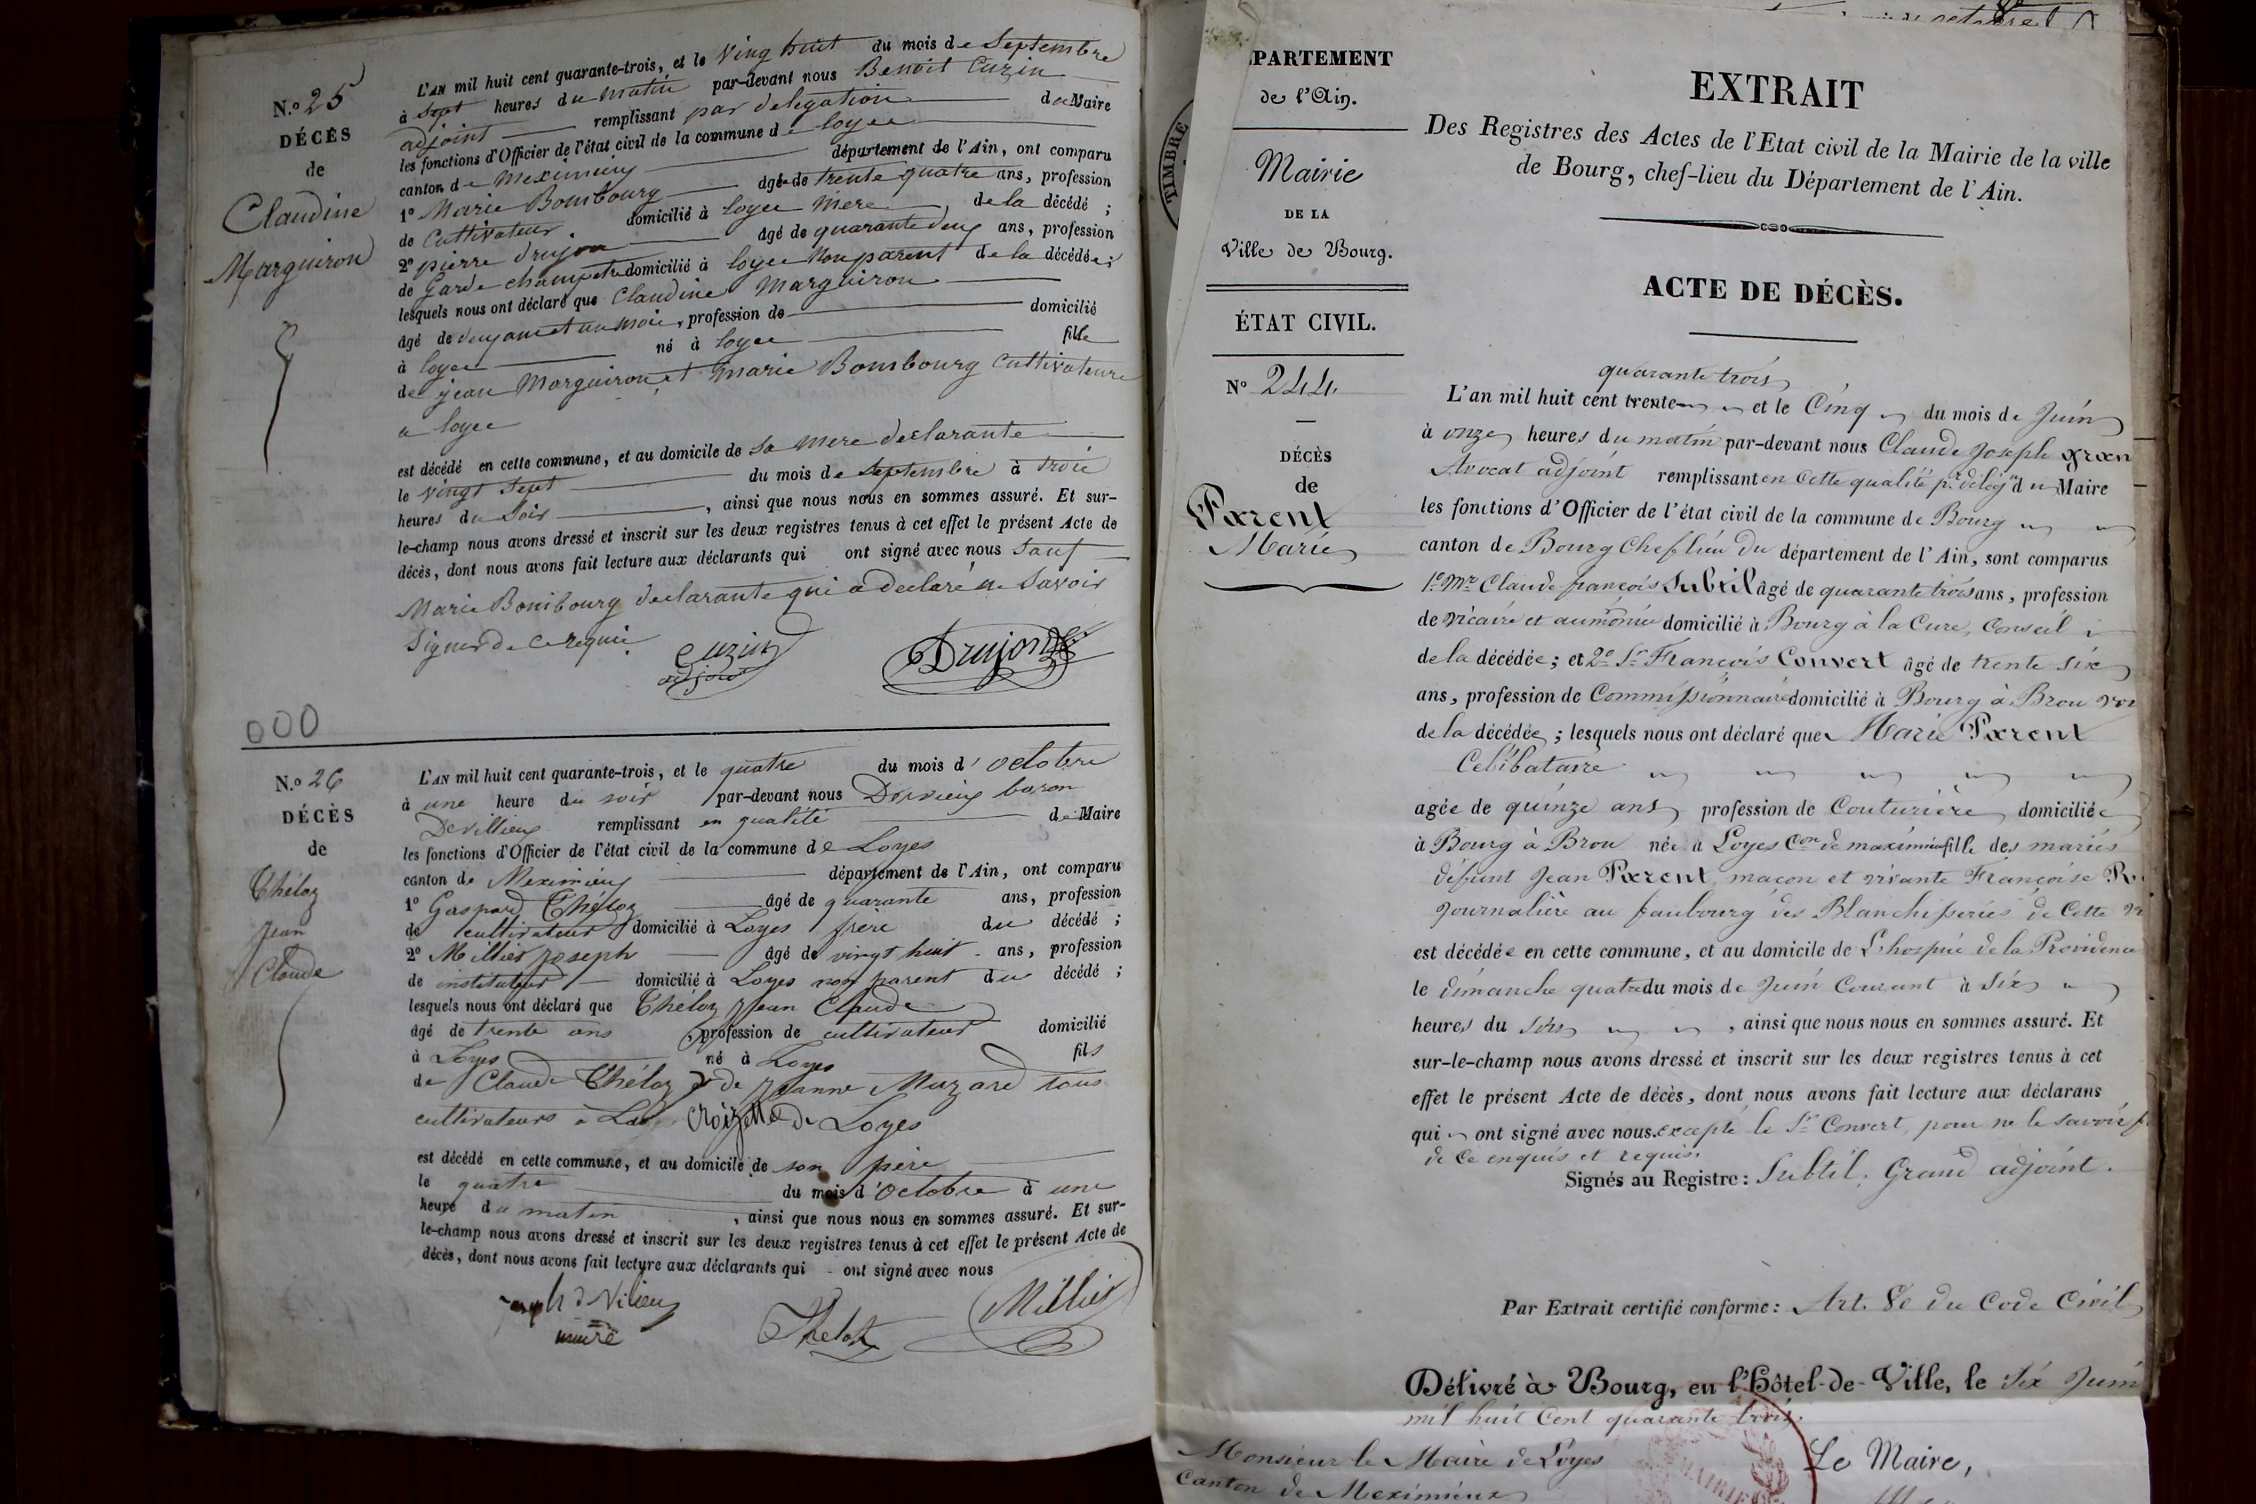 N.º 25
DÉCÈS
de
Claudine
Marguiron
L'AN mil huit cent quarante-trois, et le ving huit du mois de Septembre
à sept heures du matin par-devant nous Benoit Cuzin
adjoint remplissant par delegation du Maire
les fonctions d'Officier de l'état civil de la commune de loyes
canton de Meximieux département de l'Ain, ont comparu
1º Marie Bombourg âgé de trente quatre ans, profession
de Cultivateur domicilié à loyes mere de la décédé ;
2º pierre drujon âgé de quarante deux ans, profession
de Garde champetre domicilié à loyes non parent de la décédée ;
lesquels nous ont déclaré que Claudine Marguiron
âgé de deux ans et un mois, profession de domicilié
à loyes né à loyes fille
de jean Marguiron et marie Bombourg Cultivateurs
a loyes
est décédé en cette commune, et au domicile de sa mere declarante
le vingt sept du mois de septembre à trois
heures du soir, ainsi que nous nous en sommes assuré. Et sur-
le-champ nous avons dressé et inscrit sur les deux registres tenus à cet effet le présent Acte de
décès, dont nous avons fait lecture aux déclarants qui ont signé avec nous sauf
Marie Bombourg declarante qui a declaré ne savoir
signer de ce requise
Cuzin
adjoint
Drujon
000
N.º 26
DÉCÈS
de
Théloz
Jean
Claude
L'AN mil huit cent quarante-trois, et le quatre du mois d'octobre
à une heure du soir par-devant nous Dervieux baron
De villieux remplissant en qualité de Maire
les fonctions d'Officier de l'état civil de la commune de Loyes
canton de Meximieux département de l'Ain, ont comparu
1º Gaspard Théloz âgé de quarante ans, profession
de cultivateur domicilié à Loyes frère du décédé ;
2º Millier joseph âgé de vingt huit ans, profession
de instituteur domicilié à Loyes non parent du décédé ;
lesquels nous ont déclaré que Théloz Jean Claude
âgé de trente ans profession de cultivateur domicilié
à Loyes né à Loyes fils
de Claude Théloz & de Jeanne Mazard tous
cultivateurs à croizette de Loyes
est décédé en cette commune, et au domicile de son frère
le quatre du mois d'octobre à une
heure du matin, ainsi que nous nous en sommes assuré. Et sur-
le-champ nous avons dressé et inscrit sur les deux registres tenus à cet effet le présent Acte de
décès, dont nous avons fait lecture aux déclarants qui ont signé avec nous
joseph d Vilieux
maire
Theloz
Millier
TIMBRE
octobre
PARTEMENT
de l'Ain.
Mairie
DE LA
Ville de Bourg.
ÉTAT CIVIL.
Nº 244
DÉCÈS
de
Parent
Marie
EXTRAIT
Des Registres des Actes de l'Etat civil de la Mairie de la ville
de Bourg, chef-lieu du Département de l'Ain.
ACTE DE DÉCÈS.
quarante trois
L'an mil huit cent trente et le Cinq du mois de Juin
à onze heures du matin par-devant nous Claude Joseph gran
Avocat adjoint remplissant en cette qualité pr. délégon du Maire
les fonctions d'Officier de l'état civil de la commune de Bourg
canton de Bourg Chef lieu du département de l'Ain, sont comparus
1º Mr Claude françois Subtil âgé de quarante trois ans, profession
de vicaire et aumônier domicilié à Bourg à la Cure, Conseil
de la décédée ; et 2º Sr François Convert âgé de trente six
ans, profession de Commissionnaire domicilié à Bourg à Brou voi
de la décédée ; lesquels nous ont déclaré que Marie Parent
Celibataire
agée de quinze ans profession de Couturière domiciliée
à Bourg à Brou née à Loyes Con de maximieu fille des mariés
défunt Jean Parent, maçon et vivante Françoise R
Journalière au faubourg des Blanchisseries de Cette vi
est décédée en cette commune, et au domicile de L'hospice de la Providence
le dimanche quatre du mois de Juin Courant à Six
heures du soir, ainsi que nous nous en sommes assuré. Et
sur-le-champ nous avons dressé et inscrit sur les deux registres tenus à cet
effet le présent Acte de décès, dont nous avons fait lecture aux déclarans
qui ont signé avec nous. excepté le Sr Convert, pour ne le savoir f
de ce enquis et requis.
Signés au Registre : Subtil, Grand adjoint.
Par Extrait certifié conforme : Art. 80 du Code Civil
Délivré à Bourg, en l'Hôtel-de-Ville, le Six Juin
mil huit Cent quarante trois.
Monsieur le Maire de Loyes
Canton de Meximieux
Le Maire,
MAIRIE